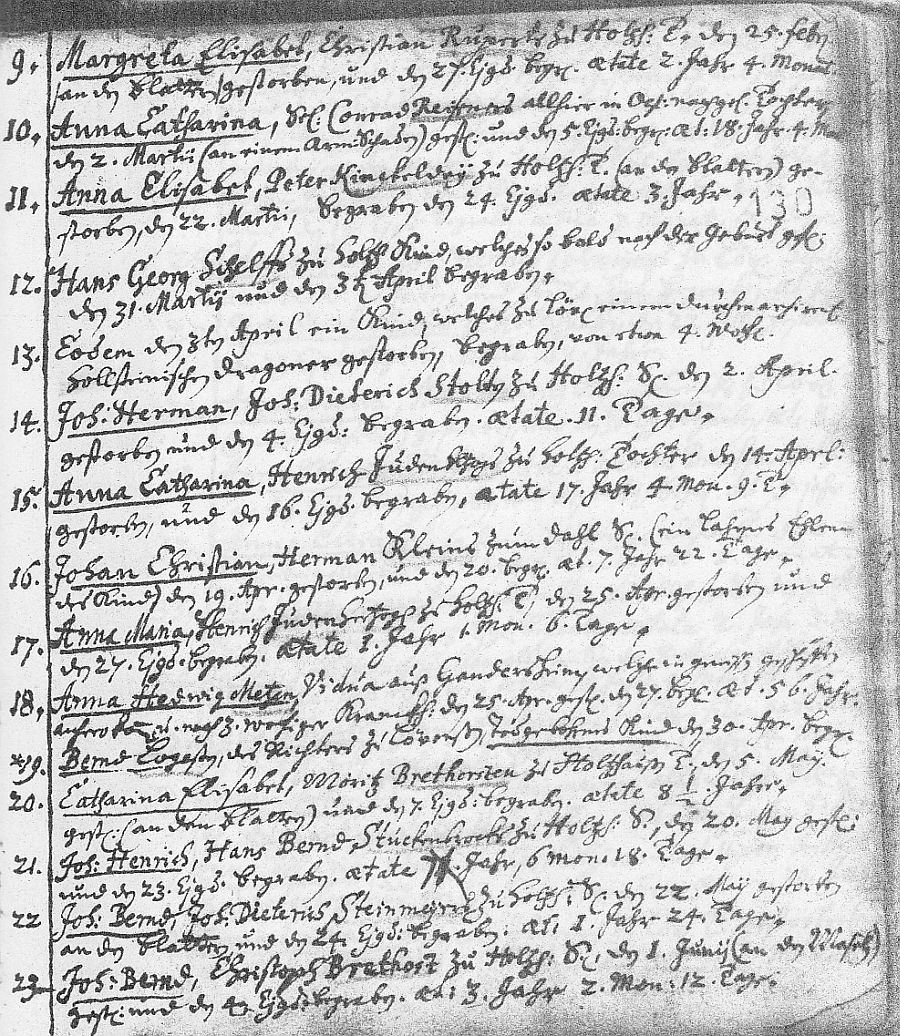 9. Margreta Elisabet, Christian Ruperts zu Holzh: T. den 25. febr.
(an den blattern) gestorben, und den 27. Ejusd. begr. ætate 2. Jahr 4. Monat
10. Anna Catharina, Sel: Conrad Reiseners allhier in Och: nachgel. Tochter
den 2. Martii (an einem Armschaden) gest: und den 5. Ejusd: begr: æt: 18. Jahr. 4. Mon
11. Anna Elisabet, Peter zu Holzh: T. (an den blattern) ge-
storben, den 22. Martii, begraben den 24. Ejusd. ætate 3. Jahr.
130
12. Hans Georg Schelffs zu Holzh Kind, welches so bald nach der Geburt gest:
den 31. Martij und den 3t April begraben.
13. Eodem den 3ten April ein Kind, welches zu einem durchmarsirend
hollsteinischen Dragoner gestorben, begraben, von etwa 4. Woch.
14. Joh: Herman, Joh: Dieterich Stolte zu Holzh: S. den 2. April.
gestorben und den 4. Ejusd: begraben. ætate. 11. Tage.
15. Anna Catharina, Henrich zu Holzh: Tochter den 14. April:
gestorben, und den 16. Ejusd. begraben, ætate 17. Jahr 4. Mon. 9. T.
16. Johan Christian, Herman Kleins zum Dahl S. (ein lahmes
des Kind) den 19. Apr. gestorben, und den 20. begr. æt. 7. Jahr 22. Tage.
17. Anna Maria, Henrich zu Holzh: T, den 25. Apr. gestorben und
den 27. Ejusd. begraben. ætate 1. Jahr 1. Mon. 6. Tage.
18. Anna Hedwig Meten, Vidua auß Gandersheim, welche in
und nach 2. wochiger Kranckh: den 25. Apr. gest. den 27. begr. æt. 56. Jahr.
19. Bernd des Richters zu todtgebohrnes Kind den 30. Apr. begr.
20. Catharina Elisabet, Moritz Brethorsten zu Holzhausen T. den 5. May.
gest: (an den blattern) und den 7. Ejusd: begraben. ætate 8 1/2. Jahr.
21. Joh: Henrich, Hans Bernd Stuckenbrocks zu Holzh: S., den 20. May gest:
und den 23. Ejusd. begraben. ætate Jahr, 6 mon. 18. Tage.
22 Joh: Bernd, Joh: Dieterich Steinmeyers zu Holzh: S. den 22. May gestorben
an den blattern und den 24. Ejusd: begraben. æt: 1. Jahr 24. Tage.
23. Joh: Bernd, Christoph Brethorst zu Holzh: S., den 1. Junij (an den Maseln)
gest: und den 4. Ejusd: begraben. æt: 3. Jahr 2. Mon: 12. Tage.